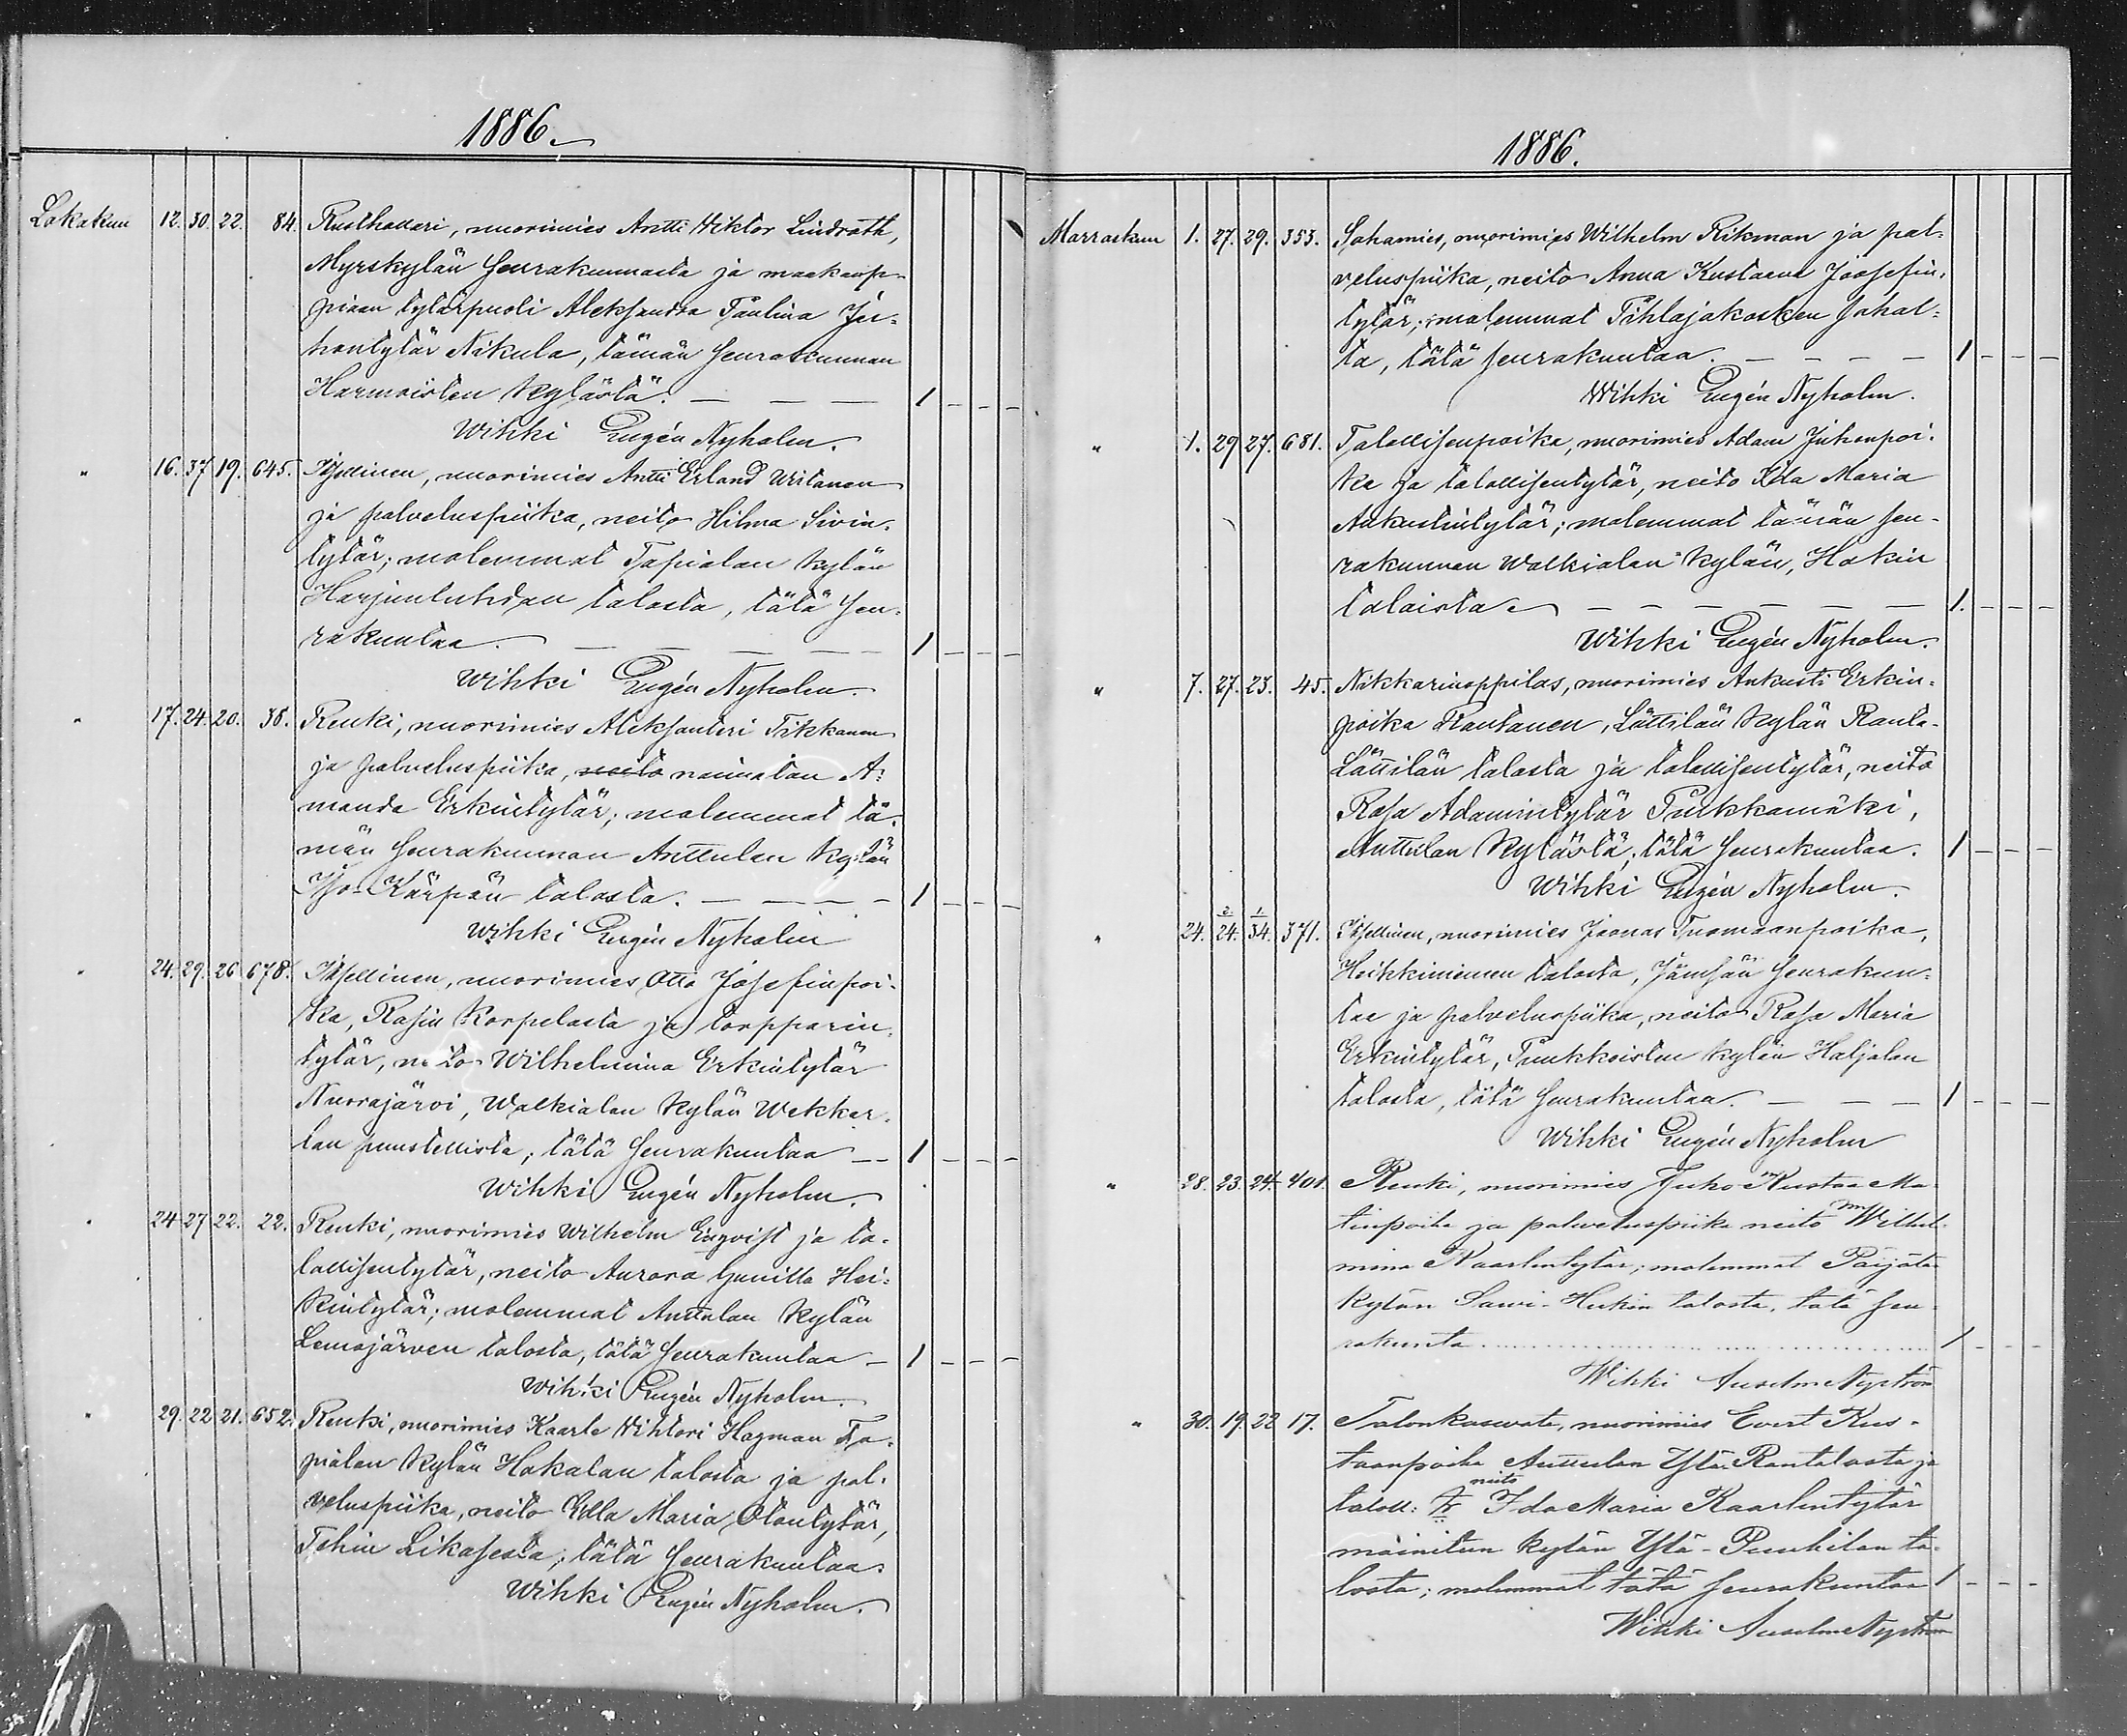 1886.
Lokakuu 12. 30. 22. 84. Rusthollari, nuorimies Antti Viktor Lindroth,
Myrskylän seurakunnasta ja maakaup-
piaan tytärpuoli Aleksandra Paulina Ju-
hontytär Nikula, tämän seurakunnan
Harmoisten kylästä. — — — 1 – – –
Wihki Eugén Nyholm.
" 16. 37. 19. 645. Itsellinen, nuorimies Antti Erland Writanen
ja palveluspiika, neito Hilma Sivin-
tytär; molemmat Tapialan kylän
Harjunluhdan talosta, tätä seu-
rakuntaa. — — — — 1 – – –
Wihki Eugén Nyholm.
" 17. 24. 20. 38. Renki, nuorimies Aleksanteri Tikkanen
ja palveluspiika, neito naimatan A-
manda Erkintytär; molemmat tä-
män seurakunnan Anttulan kylän
Iso-Kärpän talosta. — — — 1 – – –
Wihki Eugén Nyholm
" 24. 29. 26. 678. Itsellinen, nuorimies Otto Josefinpoi-
ka, Rasin Korpelasta ja torpparin-
tytär, neito Wilhelmina Erkintytär
Nuorajärvi, Walkialan kylän Wekker-
lan puustellista; tätä seurakuntaa — 1 – – –
Wihki Eugén Nyholm.
" 24 27 22. 22. Renki, nuorimies Wilhelm Enqvist ja ta-
lollisentytär, neito Aurora Gunilla Hei-
kintytär; molemmat Anttulan kylän
Lemojärven talosta, tätä seurakuntaa – 1 – – –
Wihki Eugén Nyholm.
" 29. 22 21. 652. Renki, nuorimies Kaarle Wihtori Hagman Ta-
pialan kylän Hakalan talosta ja pal-
veluspiika, neito Edla Maria Otontytär,
Likasesta; tätä seurakuntaa.
Wihki Eugén Nyholm.
1886.
Marraskuu 1. 27. 29. 353. Sahamies, nuorimies Wilhelm Rikman ja pal-
veluspiika, neito Anna Kustaava Joosefin-
tytär; molemmat Pihlajakosken sahal-
ta, tätä seurakuntaa. — — — — 1 – – –
Wihki Eugén Nyholm.
" 1. 29 27. 681. Talollisenpoika, nuorimies Adam Juhonpoi-
ka ja talollisentytär, neito Ida Maria
Aukustintytär; molemmat tämän seu-
rakunnan Walkialan kylän, Hakin
taloista — — — — — — 1. – – –
Wihki Eugén Nyholm.
" 7. 27. 23. 45. Nikkarinoppilas, nuorimies Aukusti Erkin-
poika Rautanen, Lättilän kylän Ranta-
Lättilän talosta ja talollisentytär, neito
Rosa Adamintytär Purkkamäki,
Anttulan kylästä; tätä seurakuntaa. 1 – – –
Wihki Eugén Nyholm.
" 24. 2/24. 1/34. 371. Itsellinen, nuorimies Joonas Tuomaanpoika,
Heikkiniemen talosta, Jämsän seurakun-
taa ja palveluspiika, neito Rosa Maria
Erkintytär, Puukkoisten kylän Haljalan
talosta, tätä seurakuntaa. — — — 1 – – –
Wihki Eugén Nyholm
" 28. 23. 24. 401. Renki, nuorimies Juho Kustaa Ma-
tinpoika ja palveluspiika neito Wilhel-
mina Kaarlentytär; molemmat Päijätä-
kylän Sawi-Hukin talosta, tätä seu-
rakunta 1 – – –
Wihki Anselm Nyström
" 30. 19. 22 17. Talonkaswate, nuorimies Evert Kus-
taanpoika Anttulan Ylä-Rantalasta ja
taloll: tr neito Ida Maria Kaarlentytär
mainitun kylän Ylä-Puukilan ta-
losta; molemmat tätä seurakuntaa 1 – – –
Wihki Anselm Nyström